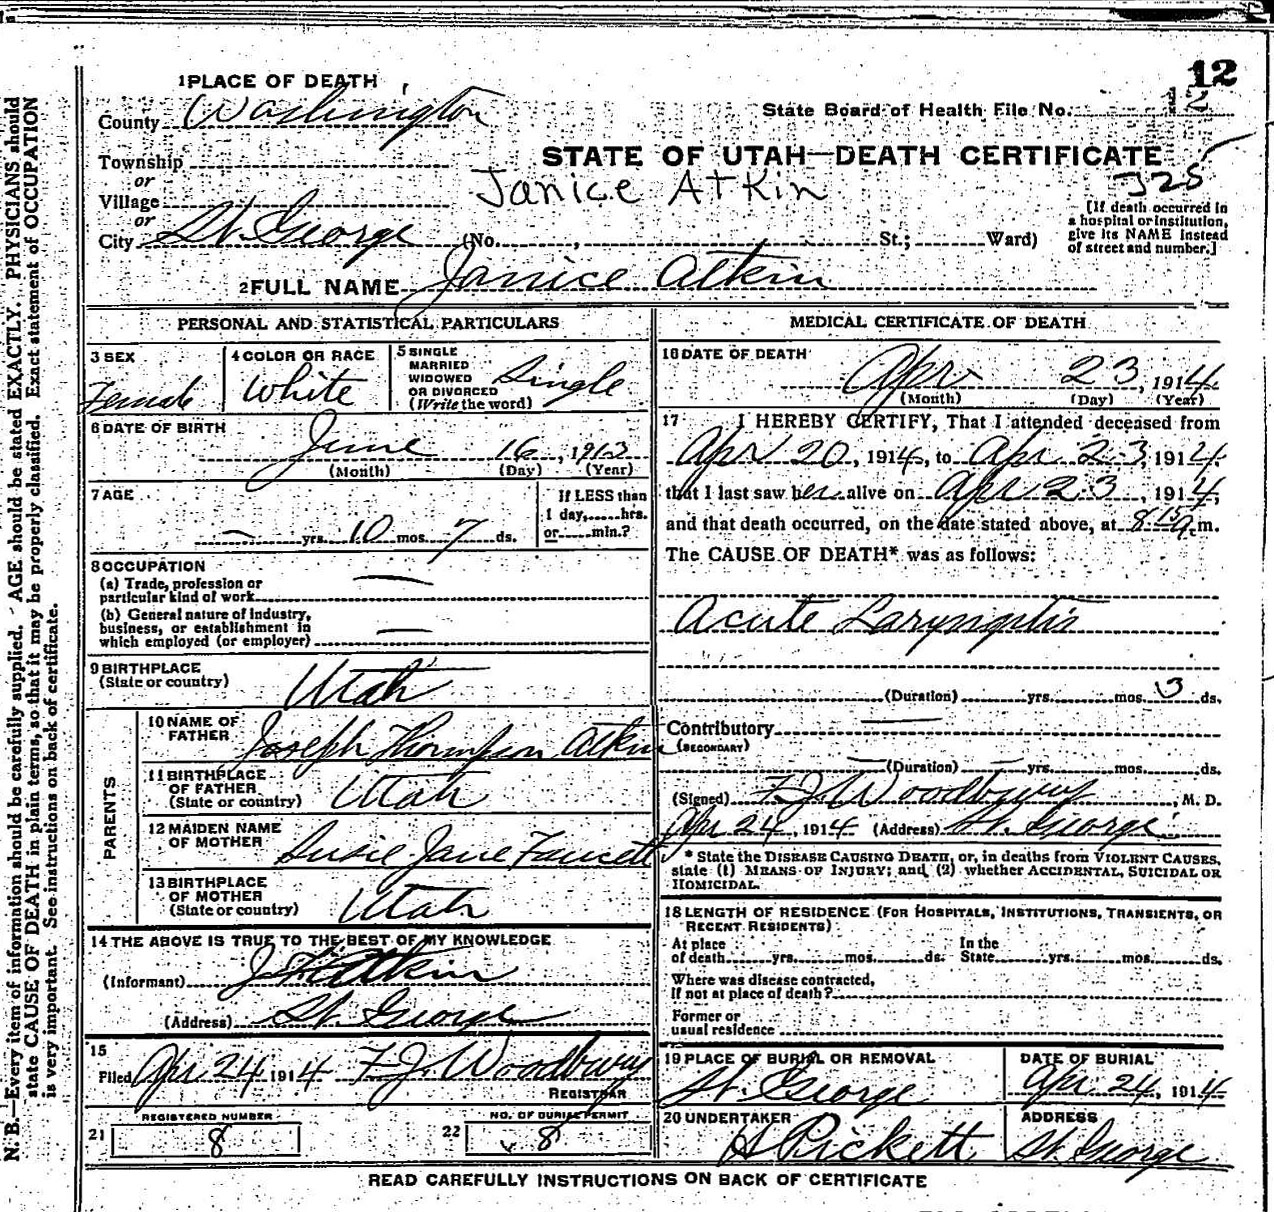 12
1 PLACE OF DEATH
County Washington
State Board of Health File No. 2
Township
or
STATE OF UTAH—DEATH CERTIFICATE
Janice Atkin
J25
Village
or
City St. George (No. , St.; Ward)
[If death occurred in
a hospital or institution,
give its NAME instead
of street and number.]
2 FULL NAME Janice Atkin
PERSONAL AND STATISTICAL PARTICULARS
3 SEX
Female
4 COLOR OR RACE
White
5 SINGLE
MARRIED
WIDOWED
OR DIVORCED
(Write the word)
Single
6 DATE OF BIRTH
June 16, 1913
(Month) (Day) (Year)
7 AGE
— yrs. 10 mos. 7 ds.
If LESS than
1 day, hrs.
or min.?
8 OCCUPATION
(a) Trade, profession or
particular kind of work —
(b) General nature of industry,
business, or establishment in
which employed (or employer) —
9 BIRTHPLACE
(State or country) Utah
PARENTS
10 NAME OF
FATHER Joseph Thompson Atkin
11 BIRTHPLACE
OF FATHER
(State or country) Utah
12 MAIDEN NAME
OF MOTHER Susie Jane Fawcett
13 BIRTHPLACE
OF MOTHER
(State or country) Utah
14 THE ABOVE IS TRUE TO THE BEST OF MY KNOWLEDGE
(Informant) J. T. Atkin
(Address) St. George
15
Filed Apr 24 1914 F. J. Woodbury
REGISTRAR
REGISTERED NUMBER
21 8
NO. OF BURIAL PERMIT
22 8
MEDICAL CERTIFICATE OF DEATH
16 DATE OF DEATH
Apr 23, 1914
(Month) (Day) (Year)
17 I HEREBY CERTIFY, That I attended deceased from
Apr 20, 1914, to Apr 23, 1914,
that I last saw her alive on Apr 23, 1914,
and that death occurred, on the date stated above, at 8:15 a.m.
The CAUSE OF DEATH* was as follows:
Acute Laryngitis
(Duration) yrs. mos. 3 ds.
Contributory —
(SECONDARY)
— (Duration) — yrs. mos. ds.
(Signed) F. J. Woodbury, M. D.
Apr 24, 1914 (Address) St. George
* State the DISEASE CAUSING DEATH, or, in deaths from VIOLENT CAUSES,
state (1) MEANS OF INJURY; and (2) whether ACCIDENTAL, SUICIDAL OR
HOMICIDAL.
18 LENGTH OF RESIDENCE (FOR HOSPITALS, INSTITUTIONS, TRANSIENTS, OR
RECENT RESIDENTS)
At place In the
of death yrs. mos. ds. State yrs. mos. ds.
Where was disease contracted,
If not at place of death?
Former or
usual residence
19 PLACE OF BURIAL OR REMOVAL
St. George
DATE OF BURIAL
Apr 24, 1914
20 UNDERTAKER
H Pickett
ADDRESS
St. George
READ CAREFULLY INSTRUCTIONS ON BACK OF CERTIFICATE
N. B.—Every item of information should be carefully supplied. AGE should be stated EXACTLY. PHYSICIANS should
state CAUSE OF DEATH in plain terms, so that it may be properly classified. Exact statement of OCCUPATION
is very important. See instructions on back of certificate.